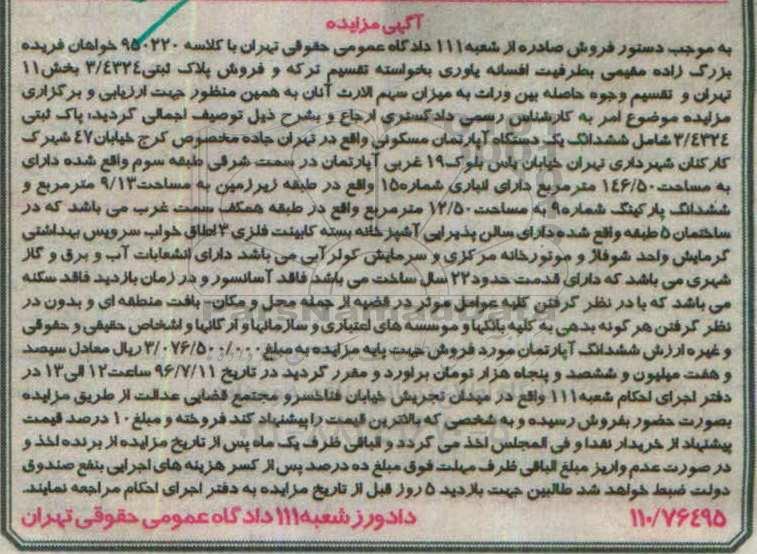 آگهی مزایده
به موجب دستور فروش صادره از شعبه ۱۱۱ دادگاه عمومی حقوقی تهران با کلاسه ۹۵۰۲۲۰ خواهان فریده
بزرگ زاده مقیمی بطرفیت افسانه یاوری بخواسته تقسیم ترکه و فروش پلاک ثبتی ۳/۴۳۲۴ بخش ۱۱
تهران و تقسیم وجوه حاصله بین وراث به میزان سهم الارث آنان به همین منظور جهت ارزیابی و برگزاری
مزایده موضوع امر به کارشناس رسمی دادگستری ارجاع و بشرح ذیل توصیف اجمالی گردید: پاک ثبتی
۳/۴۳۲۴ شامل ششدانگ یک دستگاه آپارتمان مسکونی واقع در تهران جاده مخصوص کرج خیابان ۴۷ شهرک
کارکنان شهرداری تهران خیابان یاس بلوک ۱۹ غربی آپارتمان در سمت شرقی طبقه سوم واقع شده دارای
به مساحت ۱۴۶/۵۰ مترمربع دارای انباری شماره ۱۵ واقع در طبقه زیرزمین به مساحت ۹/۱۳ مترمربع و
ششدانگ پارکینگ شماره ۹ به مساحت ۱۲/۵۰ مترمربع واقع در طبقه همکف سمت غرب می باشد که در
ساختمان ۵ طبقه واقع شده دارای سالن پذیرایی آشپزخانه بسته کابینت فلزی ۳ اطاق خواب سرویس بهداشتی
گرمایش واحد شوفاژ و موتورخانه مرکزی و سرمایش کولر آبی می باشد دارای انشعابات آب و برق و گاز
شهری می باشد که دارای قدمت حدود ۲۲ سال ساخت می باشد فاقد آسانسور و در زمان بازدید فاقد سکنه
می باشد که با در نظر گرفتن کلیه عوامل موثر در قضیه از جمله محل و مکان- بافت منطقه ای و بدون در
نظر گرفتن هرگونه بدهی به کلیه بانکها و موسسه های اعتباری و سازمانها و ارگانها و اشخاص حقیقی و حقوقی
و غیره ارزش ششدانگ آپارتمان مورد فروش جهت پایه مزایده به مبلغ ۳/۰۷۶/۵۰۰/۰۰۰ ریال معادل سیصد
و هفت میلیون و ششصد و پنجاه هزار تومان براورد و مقرر گردید در تاریخ ۹۶/۷/۱۱ ساعت ۱۲ الی ۱۳ در
دفتر اجرای احکام شعبه ۱۱۱ واقع در میدان تجریش خیابان فناخسرو مجتمع قضایی عدالت از طریق مزایده
بصورت حضور بفروش رسیده و به شخصی که بالاترین قیمت را پیشنهاد کند فروخته و مبلغ ۱۰ درصد قیمت
پیشنهاد از خریدار نقدا و فی المجلس اخذ می گردد و الباقی ظرف یک ماه پس از تاریخ مزایده از برنده اخذ و
در صورت عدم واریز مبلغ الباقی ظرف مهلت فوق مبلغ ده درصد پس از کسر هزینه های اجرایی بنفع صندوق
دولت ضبط خواهد شد طالبین جهت بازدید ۵ روز قبل از تاریخ مزایده به دفتر اجرای احکام مراجعه نمایند.
۱۱۰/۷۶۴۹۵ دادورز شعبه ۱۱۱ دادگاه عمومی حقوقی تهران
ParsNamadData